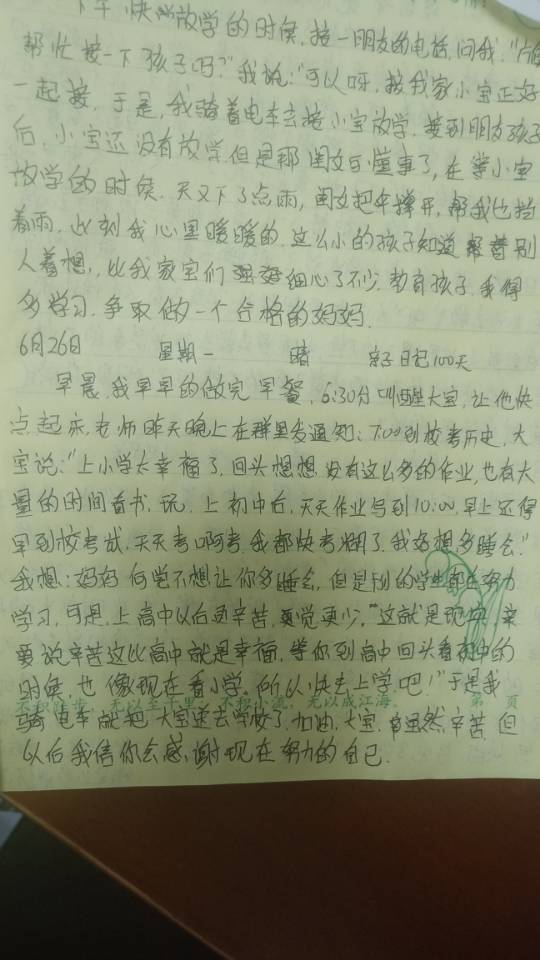 下午快放学的时候,接一朋友的电话,问我:"
帮忙接一下孩子吗?"我说:"可以呀,接我家小宝正好
一起接,于是,我骑着电车去接小宝放学.接到朋友孩子
后,小宝还没有放学.但是那闺女太懂事了,在等小宝
放学的时候.天又下了点雨,闺女把伞撑开,帮我也挡
着雨.此刻我心里暖暖的.这么小的孩子知道帮着别
人着想,比我家宝们细心了不少.教育孩子.我得
多学习.争取做一个合格的妈妈.
6月26日 星期一 晴 亲子日记100天
早晨.我早早的做完早餐,6:30分叫醒大宝,让他快
点起床,老师昨天晚上在群里发通知:7:00到校考历史,大
宝说:"上小学太幸福了,回头想想没有这么多的作业,也有大
量的时间看书.玩.上初中后,天天作业写到10:00.早上还得
早到校考试.天天考啊考.我都快考糊了.我好想多睡会."
我想:妈妈何尝不想让你多睡会,但是别的学生都在努力
学习.可是.上高中以后更辛苦.更觉更少."这就是现实.亲
要说辛苦这比高中就是幸福.等你到高中回头看初中的
时候,也像现在看小学.所以快去上学吧!"于是我
不积跬步,无以至千里;不积小流,无以成江海. 第 页
骑电车就把大宝送去学校了.加油.大宝.虽然辛苦.但
以后我信你会感谢现在努力的自己.